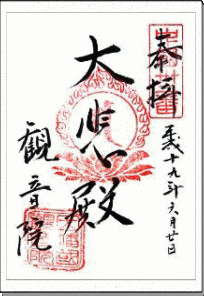 奉拝
平成十九年六月廿日
大悲殿
観音院